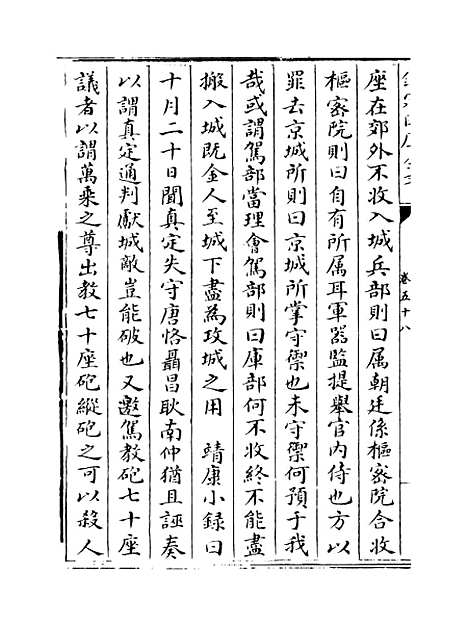 座在郊外不收入城兵部則曰属朝廷係樞密院合收
樞密院則曰自有所属耳軍器監提舉官内侍也方以
罪去京城所則曰京城所掌守禦也未守禦何預于我
哉或謂駕部當理會駕部則曰庫部何不收終不能盡
搬入城既金人至城下盡為攻城之用 靖康小録曰
十月二十日聞真定失守唐恪聶昌耿南仲猶且誣奏
以謂真定通判獻城敵豈能破也又邀駕教砲七十座
議者以謂萬乘之尊出教七十座砲縱砲之可以殺人
卷五十八